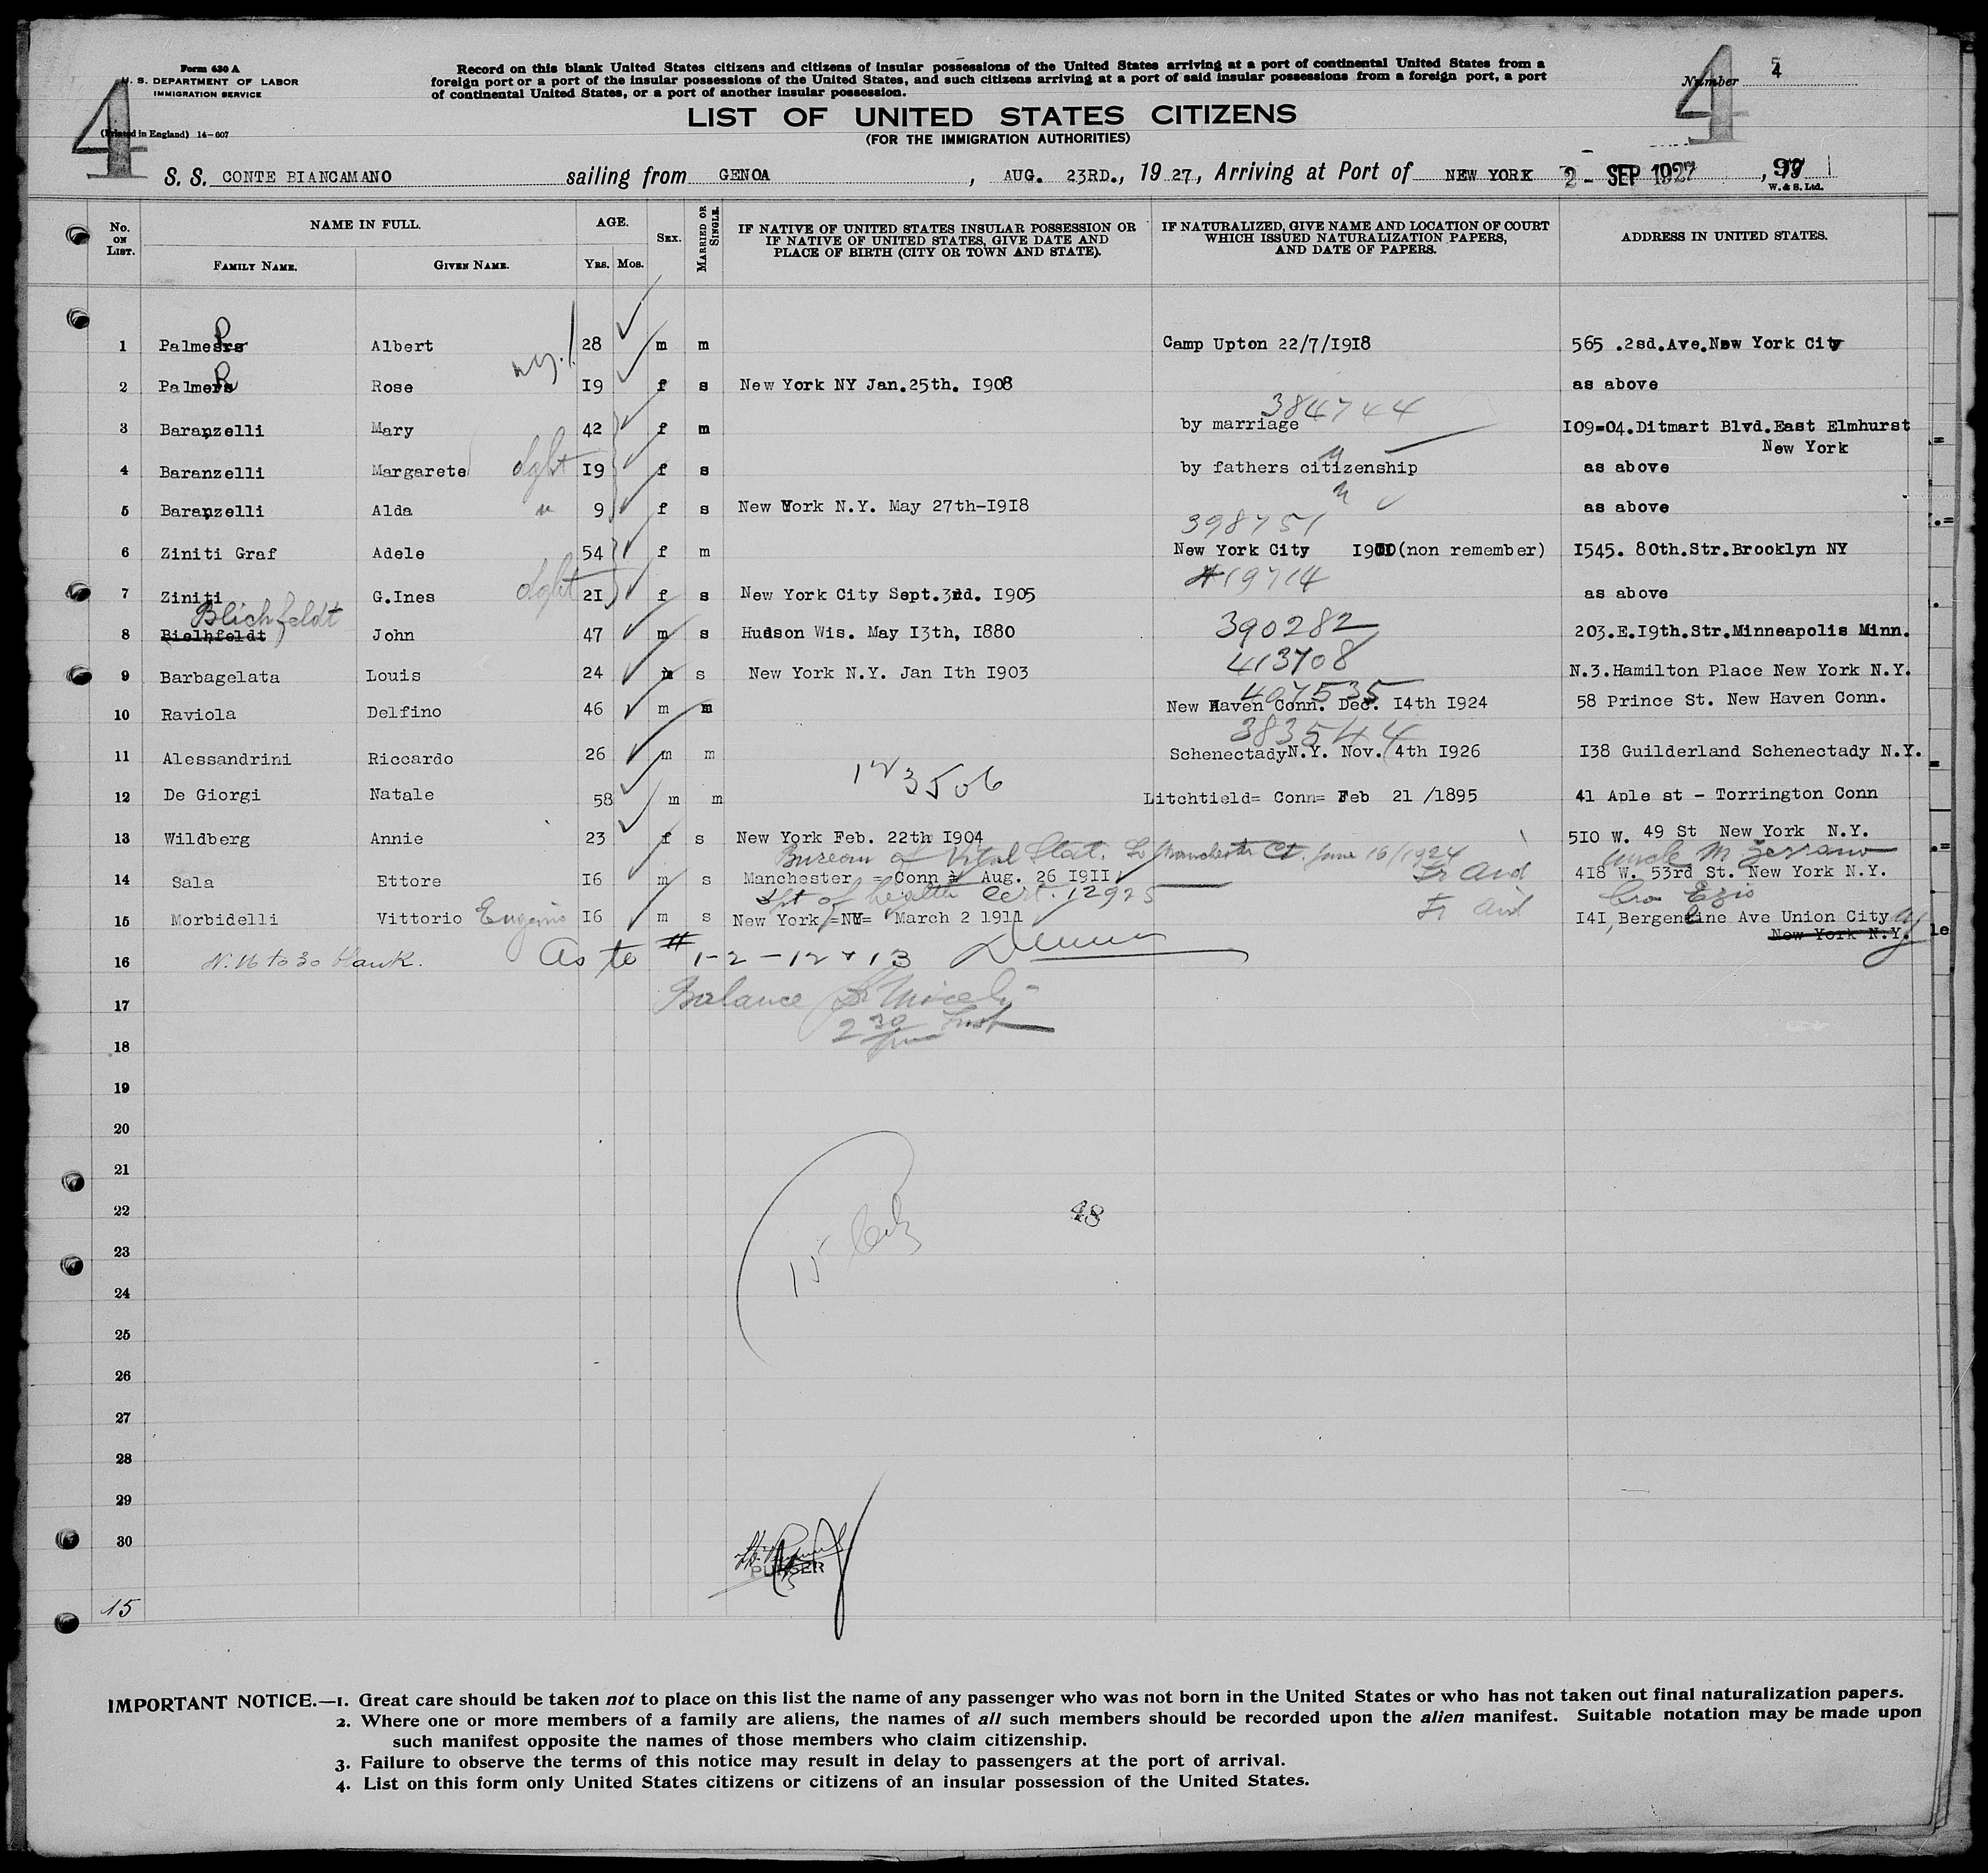 Form 630 A
U. S. DEPARTMENT OF LABOR
IMMIGRATION SERVICE
(Printed in England) 14-607
4
Record on this blank United States citizens and citizens of insular possessions of the United States arriving at a port of continental United States from a
foreign port or a port of the insular possessions of the United States, and such citizens arriving at a port of said insular possessions from a foreign port, a port
of continental United States, or a port of another insular possession.
Number 4
4
LIST OF UNITED STATES CITIZENS
(FOR THE IMMIGRATION AUTHORITIES)
S. S. CONTE BIANCAMANO sailing from GENOA, AUG. 23RD., 1927, Arriving at Port of NEW YORK 2 - SEP 1927, 19
W. & S. Ltd.
No. ON LIST. NAME IN FULL. FAMILY NAME. GIVEN NAME. AGE. YRS. MOS. SEX. MARRIED OR SINGLE. IF NATIVE OF UNITED STATES INSULAR POSSESSION OR IF NATIVE OF UNITED STATES, GIVE DATE AND PLACE OF BIRTH (CITY OR TOWN AND STATE). IF NATURALIZED, GIVE NAME AND LOCATION OF COURT WHICH ISSUED NATURALIZATION PAPERS, AND DATE OF PAPERS. ADDRESS IN UNITED STATES.
1 Palmers R Albert 28 m m Camp Upton 22/7/I9I8 565 .2sd.Ave.New York City
2 Palmers R Rose I9 f s New York NY Jan.25th. I908 as above
384744
3 Baranzelli Mary 42 f m by marriage I09=04.Ditmart Blvd.East Elmhurst
New York
4 Baranzelli Margarete dght I9 f s by fathers citizenship as above
5 Baranzelli Alda " 9 f s New York N.Y. May 27th-I9I8 " as above
398751
6 Ziniti Graf Adele 54 f m New York City (non remember) I545. 80th.Str.Brooklyn NY
#19714
7 Ziniti G.Ines dght 2I f s New York City Sept.3rd. I905 as above
Blichfeldt
8 Bielhfeldt John 47 m s Hudson Wis. May I3th, I880 390282 203.E.I9th.Str.Minneapolis Minn.
413708
9 Barbagelata Louis 24 m s New York N.Y. Jan Ith I903 N.3.Hamilton Place New York N.Y.
407535
10 Raviola Delfino 46 m m New Haven Conn. Dec. I4th I924 58 Prince St. New Haven Conn.
383544
11 Alessandrini Riccardo 26 m m SchenectadyN.Y. Nov. 4th I926 I38 Guilderland Schenectady N.Y.
123506
12 De Giorgi Natale 58 m m Litchtield= Conn= Feb 21 /1895 41 Aple st - Torrington Conn
13 Wildberg Annie 23 f s New York Feb. 22th I904 5I0 W. 49 St New York N.Y.
Bureau of Vital Stat. So Manchester Ct. June 16/1924 Uncle M Zerrano
14 Sala Ettore I6 m s Manchester = Conn = Aug. 26 I9II 4I8 W. 53rd St. New York N.Y.
Dpt of health Cert. 12925 Bro Ezio
15 Morbidelli Vittorio Eugenio I6 m s New York =NY= March 2 1911 I4I, Bergenline Ave Union City
New York N.Y.
16 N. 16 to 30 blank. As to # 1-2-12 + 13
17 Balance
2 30
18
19
20
21
22 48
23 15
24
25
26
27
28
29
30
PURSER
15
IMPORTANT NOTICE.—1. Great care should be taken not to place on this list the name of any passenger who was not born in the United States or who has not taken out final naturalization papers.
2. Where one or more members of a family are aliens, the names of all such members should be recorded upon the alien manifest. Suitable notation may be made upon
such manifest opposite the names of those members who claim citizenship.
3. Failure to observe the terms of this notice may result in delay to passengers at the port of arrival.
4. List on this form only United States citizens or citizens of an insular possession of the United States.